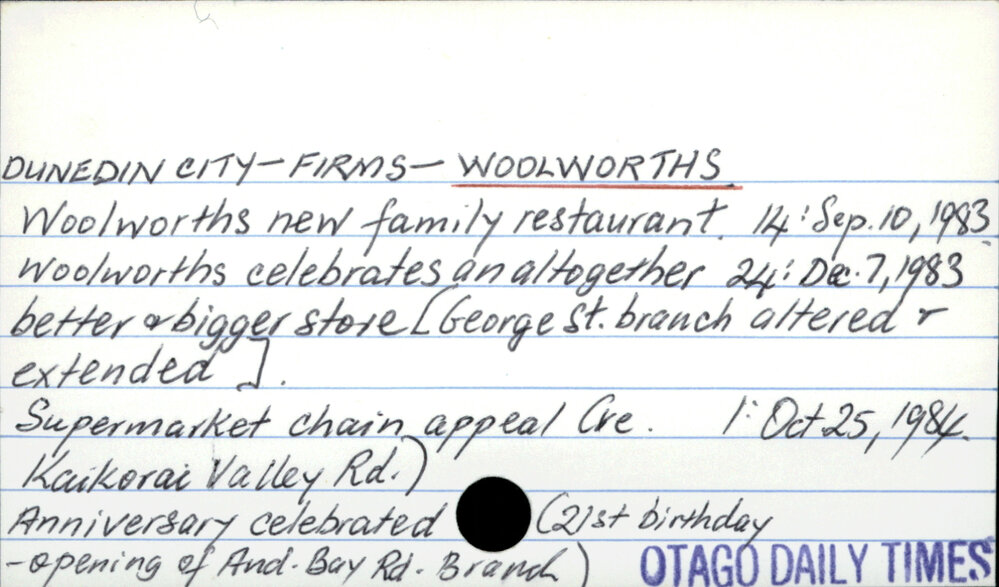 DUNEDIN CITY - FIRMS - WOOLWORTHS
Woolworths new family restaurant. 14: Sep. 10, 1983
Woolworths celebrates an altogether 24: Dec. 7, 1983
better & bigger store [George St. branch altered &
extended].
Supermarket chain appeal (re. 1: Oct 25, 1984.
Kaikorai Valley Rd.)
Anniversary celebrated (21st birthday
- opening of And. Bay Rd. Branch)
OTAGO DAILY TIMES